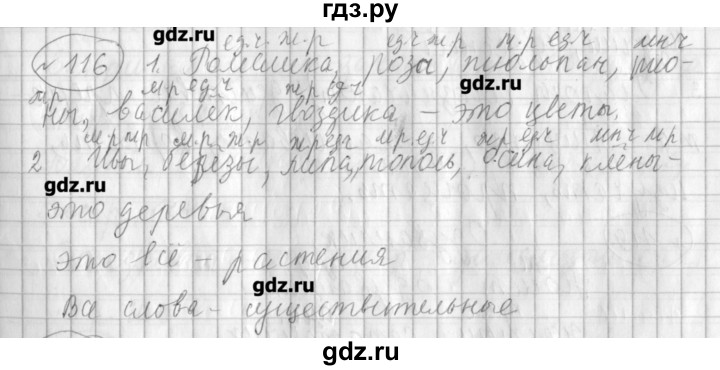 гдз.ру
gdz.ru
ед.ч. ж.р ед.ч ж р м.р ед.ч мн.ч
№ 116 1. Ромашка, роза, тюльпан, пио-
м р ед.ч ж р ед.ч
ны, василёк, гвоздика, – это цветы.
м.р. ж.р ж р ед.ч м р ед.ч ж р ед.ч мн.ч м р
2 Ивы, берёзы, липа, тополь, осина, клёны –
gdz.ru
это деревья
это всё – растения
gdz.ru
Все слова – существительные
gdz.ru